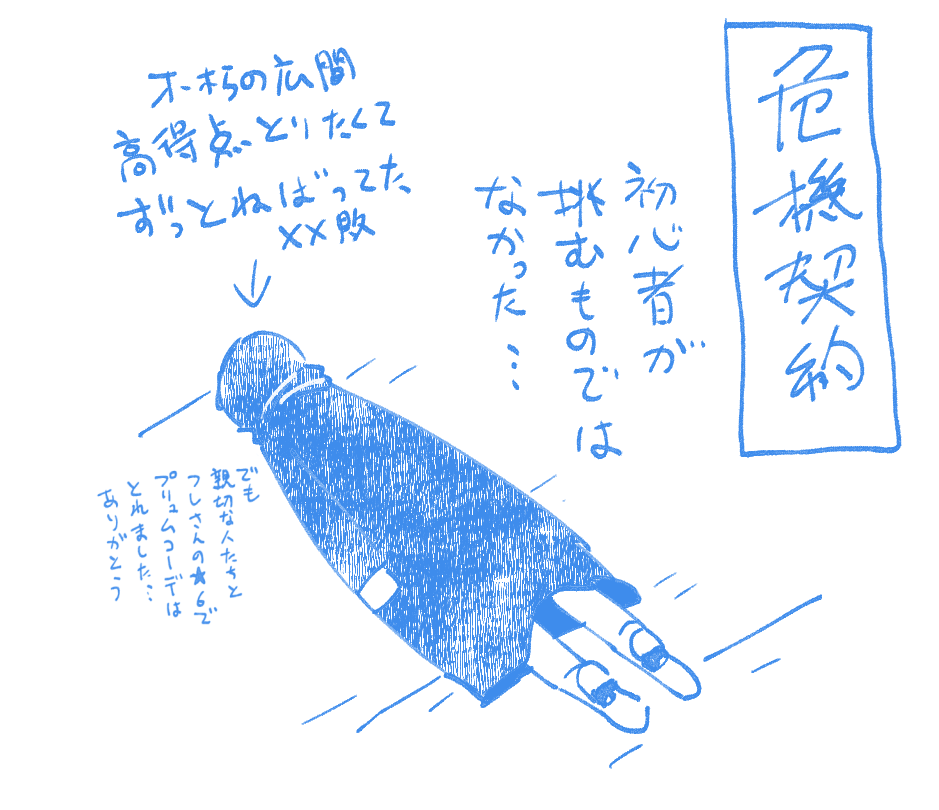 危機契約
初心者が
挑むものでは
なかった…
オーホらの広間
高得点とりたくて
ずっとねばってた
××敗
でも
親切な人たちと
フレさんの★6で
プリュムコーデは
とれました…
ありがとう